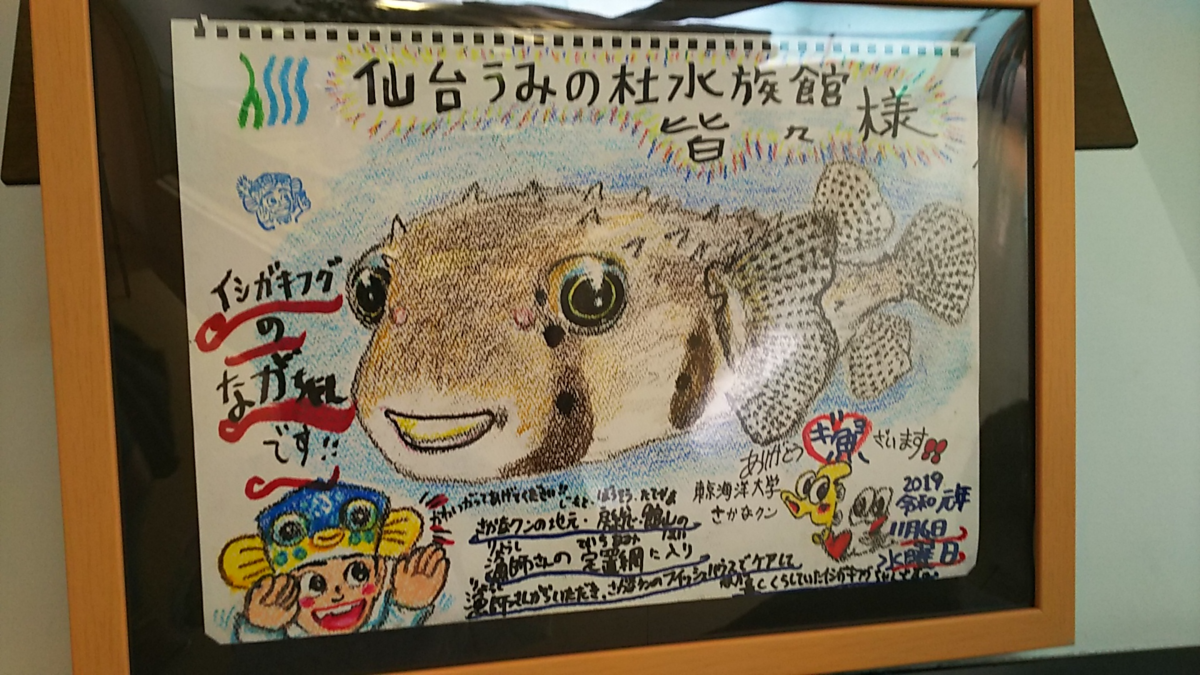 仙台うみの杜水族館
皆々様
イシガキフグ
の
ながちゃん
です!!
ありがとうギョざいます!!
東京海洋大学
さかなクン
2019
令和元年
11月6日
水曜日
かわいがってあげてください!!
さかなクンの地元・房総・館山の
りょうし
漁師さんの 定置網に入り
漁師さんからいただき、さかなクンのフィッシュハウスでケアして